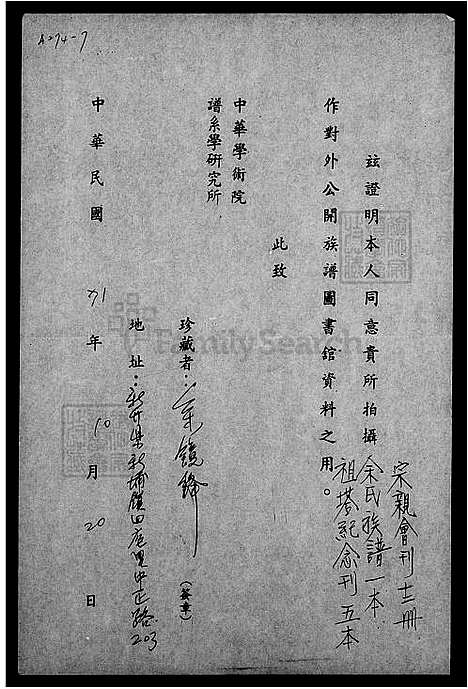 A274-7
茲證明本人同意貴所拍攝
宗親會刊十二册
余氏族譜一本
祖塔紀念刊五本
作對外公開族譜圖書館資料之用。
此致
中華學術院
譜系學研究所
珍藏者：余鏡鋒（簽章）
地址：新竹縣新埔鎮四座里中正路203
中華民國71年10月20日
FamilySearch